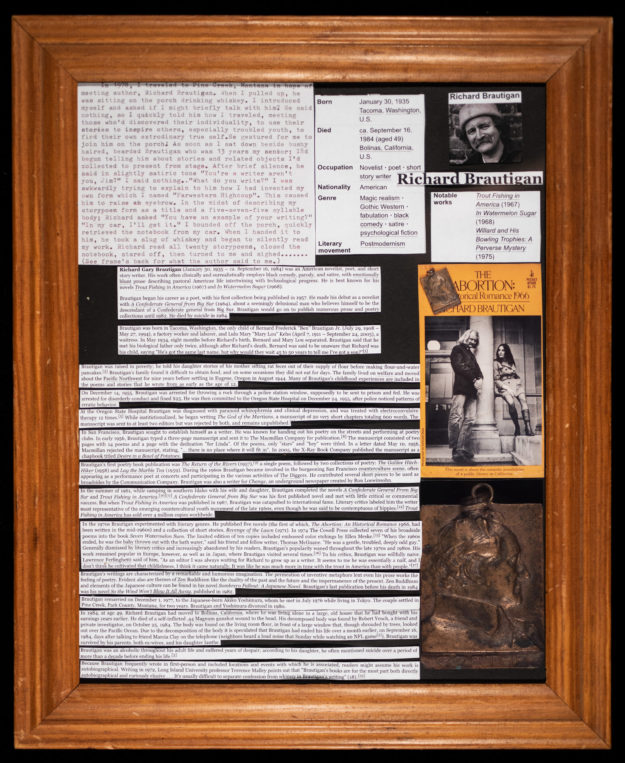 meeting author, Richard Brautigan, when I pulled up, he
was sitting on the porch drinking whiskey. I introduced
myself and asked if I might briefly talk with him? He said
nothing, so I quickly told him how I traveled, meeting
those who'd discovered their individuality, to use their
stories to inspire others, especially troubled youth, to
find their own extrodinary true self. He gestured for me to
join him on the porch. As soon as I sat down beside bushy
haired, bearded Brautigan who was 13 years my senior; I'd
begun telling him about stories and related objects I'd
collected to present from stage. After brief silence, he
said in slightly satiric tone "You're a writer aren't
you, Jim?" I said nothing. "What do you write?" I was
awkwardly trying to explain to him how I had invented my
own form which I named "Farwestern Highcoup". This caused
him to raise an eyebrow. In the midst of describing my
storypoem form as a title and a five-seven-five syllable
body; Richard asked "You have an example of your writing?"
"In my car, I'll get it." I bounded off the porch, quickly
retrieved the notebook from my car. When I handed it to
him, he took a slug of whiskey and began to silently read
my work. Richard read all twenty storypoems, closed the
notebook, stared off, then turned to me and sighed.......
(See frame's back for what the author said to me.)
Born January 30, 1935
Tacoma, Washington,
U.S.
Died ca. September 16,
1984 (aged 49)
Bolinas, California,
U.S.
Occupation Novelist · poet · short
story writer
Nationality American
Genre Magic realism ·
Gothic Western ·
fabulation · black
comedy · satire ·
psychological fiction
Literary
movement Postmodernism
Richard Brautigan
Richard Brautigan
Notable
works
Trout Fishing in
America (1967)
In Watermelon Sugar
(1968)
Willard and His
Bowling Trophies: A
Perverse Mystery
(1975)
THE
ABORTION:
Historical Romance 1966
RICHARD BRAUTIGAN
Richard Gary Brautigan (January 30, 1935 – ca. September 16, 1984) was an American novelist, poet, and short
story writer. His work often clinically and surrealistically employs black comedy, parody, and satire, with emotionally
blunt prose describing pastoral American life intertwining with technological progress. He is best known for his
novels Trout Fishing in America (1967) and In Watermelon Sugar (1968).
Brautigan began his career as a poet, with his first collection being published in 1957. He made his debut as a novelist
with A Confederate General from Big Sur (1964), about a seemingly delusional man who believes himself to be the
descendant of a Confederate general from Big Sur. Brautigan would go on to publish numerous prose and poetry
collections until 1982. He died by suicide in 1984.
Brautigan was born in Tacoma, Washington, the only child of Bernard Frederick "Ben" Brautigan Jr. (July 29, 1908 –
May 27, 1994), a factory worker and laborer, and Lulu Mary "Mary Lou" Kehn (April 7, 1911 – September 24, 2005), a
waitress. In May 1934, eight months before Richard's birth, Bernard and Mary Lou separated. Brautigan said that he
met his biological father only twice, although after Richard's death, Bernard was said to be unaware that Richard was
his child, saying "He's got the same last name, but why would they wait 45 to 50 years to tell me I've got a son?"
Brautigan was raised in poverty; he told his daughter stories of his mother sifting rat feces out of their supply of flour before making flour-and-water
pancakes. Brautigan's family found it difficult to obtain food, and on some occasions they did not eat for days. The family lived on welfare and moved
about the Pacific Northwest for nine years before settling in Eugene, Oregon in August 1944. Many of Brautigan's childhood experiences are included in
the poems and stories that he wrote from as early as the age of 12.
On December 14, 1955, Brautigan was arrested for throwing a rock through a police station window, supposedly to be sent to prison and fed. He was
arrested for disorderly conduct and fined $25. He was then committed to the Oregon State Hospital on December 24, 1955, after police noticed patterns of
erratic behavior.
At the Oregon State Hospital Brautigan was diagnosed with paranoid schizophrenia and clinical depression, and was treated with electroconvulsive
therapy 12 times. While institutionalized, he began writing The God of the Martians, a manuscript of 20 very short chapters totaling 600 words. The
manuscript was sent to at least two editors but was rejected by both, and remains unpublished.
In San Francisco, Brautigan sought to establish himself as a writer. He was known for handing out his poetry on the streets and performing at poetry
clubs. In early 1956, Brautigan typed a three-page manuscript and sent it to The Macmillan Company for publication. The manuscript consisted of two
pages with 14 poems and a page with the dedication "for Linda". Of the poems, only "stars" and "hey" were titled. In a letter dated May 10, 1956,
Macmillan rejected the manuscript, stating, "... there is no place where it will fit in". In 2005, the X-Ray Book Company published the manuscript as a
chapbook titled Desire in a Bowl of Potatoes.
Brautigan's first poetry book publication was The Return of the Rivers (1957), a single poem, followed by two collections of poetry: The Galilee Hitch-
Hiker (1958) and Lay the Marble Tea (1959). During the 1960s Brautigan became involved in the burgeoning San Francisco counterculture scene, often
appearing as a performance poet at concerts and participating in the various activities of The Diggers. He contributed several short pieces to be used as
broadsides by the Communication Company. Brautigan was also a writer for Change, an underground newspaper created by Ron Loewinsohn.
In the summer of 1961, while camping in southern Idaho with his wife and daughter, Brautigan completed the novels A Confederate General From Big
Sur and Trout Fishing in America. A Confederate General from Big Sur was his first published novel and met with little critical or commercial
success. But when Trout Fishing in America was published in 1967, Brautigan was catapulted to international fame. Literary critics labeled him the writer
most representative of the emerging countercultural youth movement of the late 1960s, even though he was said to be contemptuous of hippies. Trout
Fishing in America has sold over 4 million copies worldwide.
In the 1970s Brautigan experimented with literary genres. He published five novels (the first of which, The Abortion: An Historical Romance 1966, had
been written in the mid-1960s) and a collection of short stories, Revenge of the Lawn (1971). In 1974 The Cowell Press collected seven of his broadside
poems into the book Seven Watermelon Suns. The limited edition of ten copies included embossed color etchings by Ellen Meske. "When the 1960s
ended, he was the baby thrown out with the bath water," said his friend and fellow writer, Thomas McGuane. "He was a gentle, troubled, deeply odd guy."
Generally dismissed by literary critics and increasingly abandoned by his readers, Brautigan's popularity waned throughout the late 1970s and 1980s. His
work remained popular in Europe, however, as well as in Japan, where Brautigan visited several times. To his critics, Brautigan was willfully naive.
Lawrence Ferlinghetti said of him, "As an editor I was always waiting for Richard to grow up as a writer. It seems to me he was essentially a naïf, and I
don't think he cultivated that childishness, I think it came naturally. It was like he was much more in tune with the trout in America than with people."
Brautigan's writings are characterized by a remarkable and humorous imagination. The permeation of inventive metaphors lent even his prose works the
feeling of poetry. Evident also are themes of Zen Buddhism like the duality of the past and the future and the impermanence of the present. Zen Buddhism
and elements of the Japanese culture can be found in his novel Sombrero Fallout: A Japanese Novel. Brautigan's last publication before his death in 1984
was his novel So the Wind Won't Blow It All Away, published in 1982.
Brautigan remarried on December 1, 1977, to the Japanese-born Akiko Yoshimura, whom he met in July 1976 while living in Tokyo. The couple settled in
Pine Creek, Park County, Montana, for two years. Brautigan and Yoshimura divorced in 1980.
In 1984, at age 49, Richard Brautigan had moved to Bolinas, California, where he was living alone in a large, old house that he had bought with his
earnings years earlier. He died of a self-inflicted .44 Magnum gunshot wound to the head. His decomposed body was found by Robert Yench, a friend and
private investigator, on October 25, 1984. The body was found on the living room floor, in front of a large window that, though shrouded by trees, looked
out over the Pacific Ocean. Due to the decomposition of the body it is speculated that Brautigan had ended his life over a month earlier, on September 16,
1984, days after talking to friend Marcia Clay on the telephone (neighbors heard a loud noise that Sunday while watching an NFL game). Brautigan was
survived by his parents, both ex-wives, and his daughter Ianthe.
Brautigan was an alcoholic throughout his adult life and suffered years of despair; according to his daughter, he often mentioned suicide over a period of
more than a decade before ending his life.
Because Brautigan frequently wrote in first-person and included locations and events with which he is associated, readers might assume his work is
autobiographical. Writing in 1979, Long Island University professor Terrence Malley points out that "Brautigan's books are for the most part both directly
autobiographical and curiously elusive ... It's usually difficult to separate confession from whimsy in Brautigan's writing" (18).